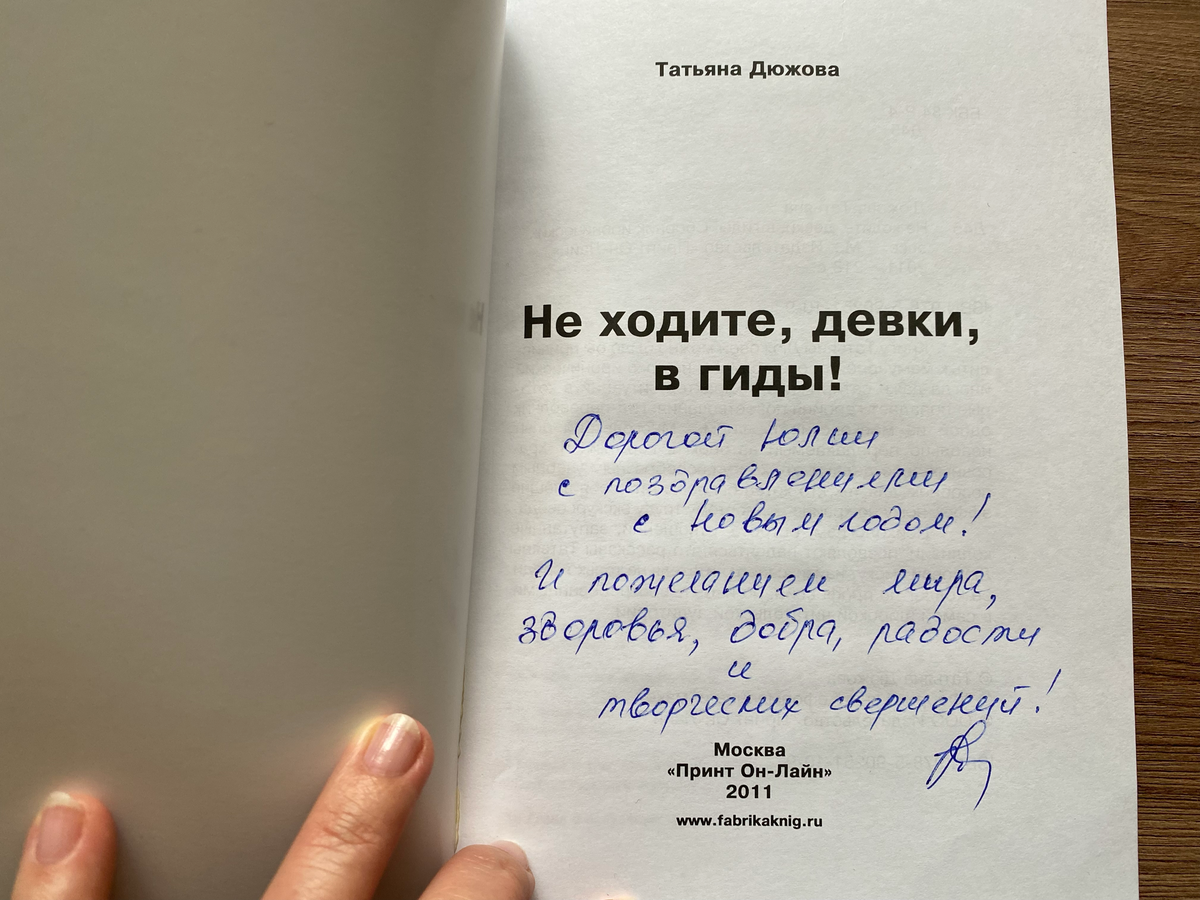 Татьяна Дюжова
Не ходите, девки,
в гиды!
Дорогой Юлии
с поздравлениями
с Новым годом!
И пожеланием мира,
здоровья, добра, радости
и
творческих свершений!
Москва
«Принт Он-Лайн»
2011
www.fabrikaknig.ru